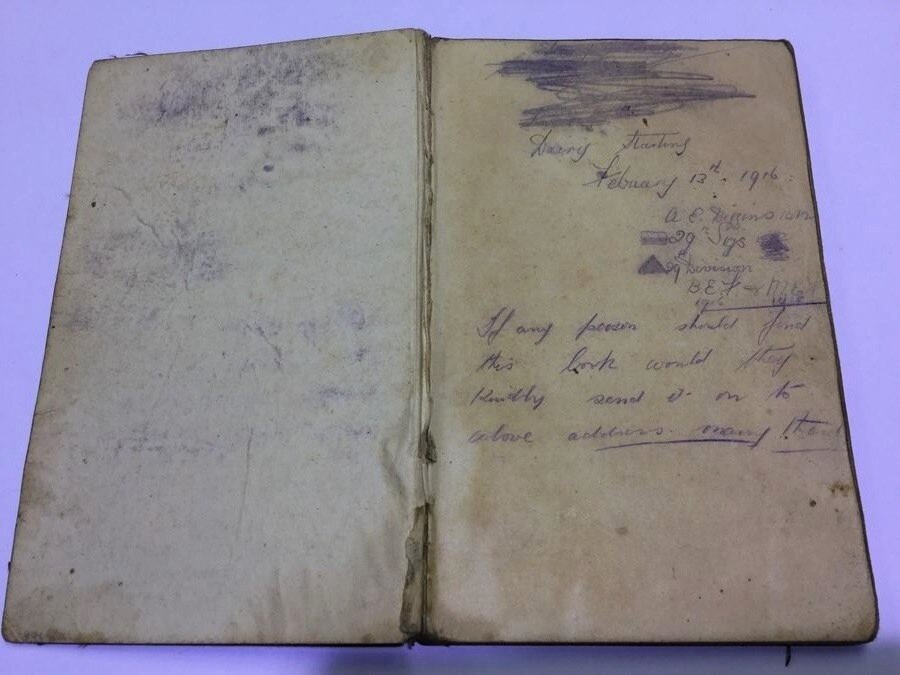 Diary Starting
February 13th. 1916.
A E. Diggins
29th Sigs
29th Division
B E F
1916
If any person should find
this book would they
Kindly send it on to
above address. many thanks